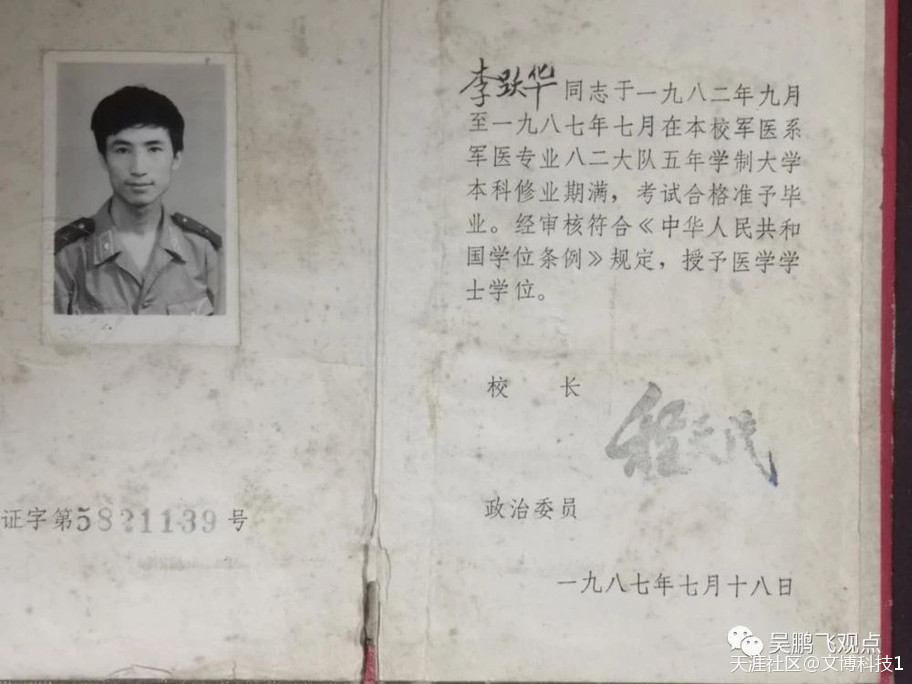 李跃华同志于一九八二年九月
至一九八七年七月在本校军医系
军医专业八二大队五年学制大学
本科修业期满，考试合格准予毕
业。经审核符合《中华人民共和
国学位条例》规定，授予医学学
士学位。
校 长
程天民
政治委员
一九八七年七月十八日
证字第5821139号
吴鹏飞观点
天涯社区@文博科技1